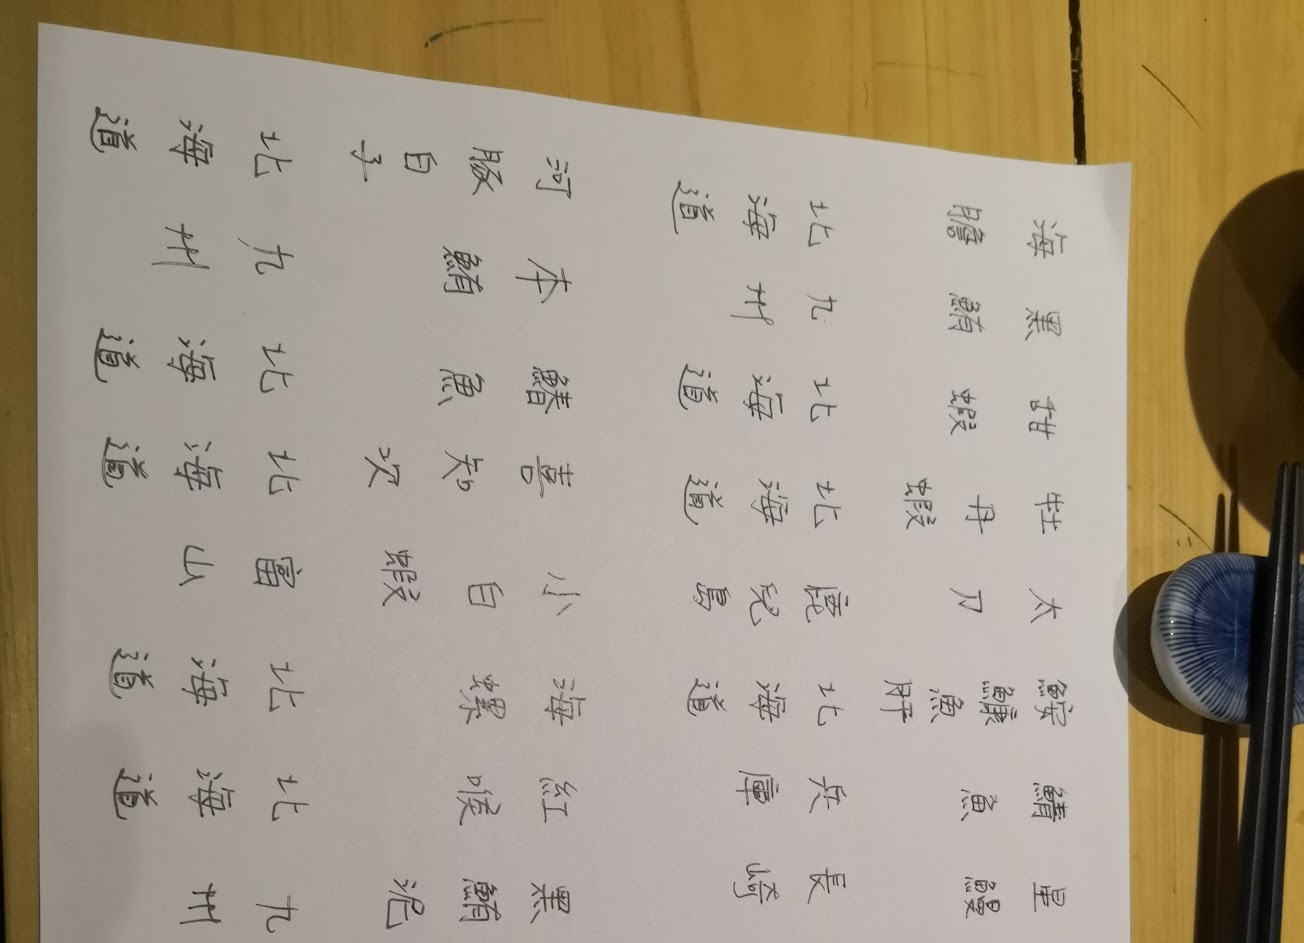 星鰻 長崎
鯖魚 兵庫
鮟鱇魚肝 北海道
太刀 鹿兒島
牡丹蝦 北海道
甜蝦 北海道
黑鮪 九州
海膽 北海道
黑鮪泥 九州
紅喉 北海道
海螺 北海道
小白蝦 富山
喜知次 北海道
鰆魚 北海道
本鮪 九州
河豚白子 北海道